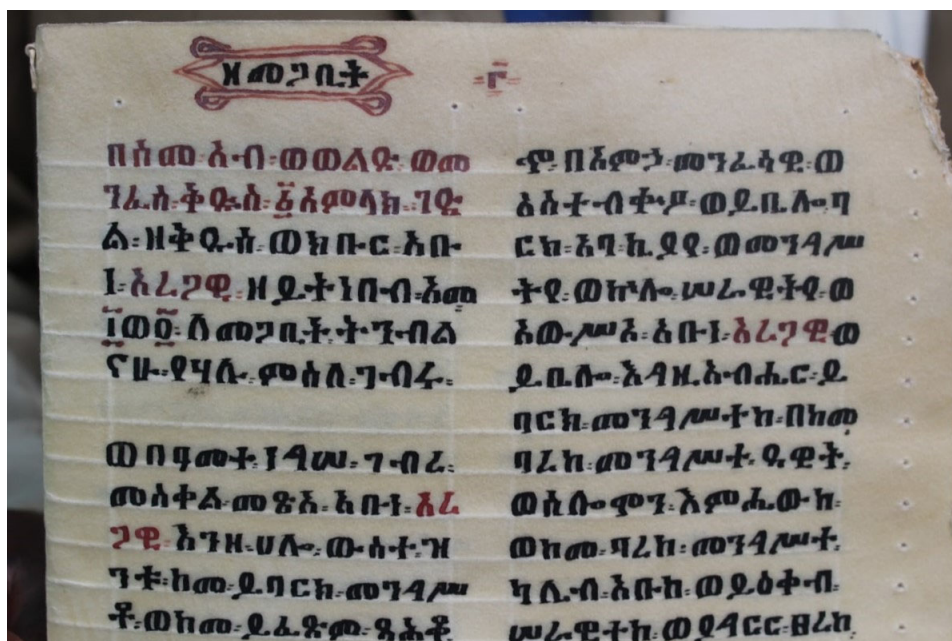 ዘመጋቢት
፫
በስመ፡አብ፡ወወልድ፡ወመ
ንፈስ፡ቅዱስ፡፩አምላክ፡ገድ
ል፡ዘቅዱስ፡ወክቡር፡አቡ
ነ፡አረጋዊ፡ዘይትነበብ፡አመ
፲ወ፬፡ለመጋቢት፡ትንብል
ናሁ፡የሃሉ፡ምስለ፡ገብሩ፡
ወበዓመተ፡ነግሠ፡ገብረ፡
መስቀል፡መጽአ፡አቡነ፡አረ
ጋዊ፡እንዘ፡ሀሎ፡ውስተ፡ዝ
ንቱ፡ከመ፡ይባርክ፡መንግሥ
ቶ፡ወከመ፡ይፈጽም፡ጎሕቶ
ጭ፡በአምኃ፡መንፈሳዊ፡ወ
አስተብቍዖ፡ወይቤሎ፡ባ
ርክ፡አባ፡ኪያየ፡ወመንግሥ
ትየ፡ወኵሎ፡ሠራዊትየ፡ወ
አውሥአ፡አቡነ፡አረጋዊ፡ወ
ይቤሎ፡እግዚአብሔር፡ይ
ባርክ፡መንግሥተከ፡በከመ
ባረከ፡መንግሥተ፡ዳዊት፡
ወሰሎሞን፡እምሔውከ፡
ወከመ፡ባረከ፡መንግሥተ፡
ካሌብ፡አቡከ፡ወይዕቀብ፡
ሠራዊተከ፡ወያግርር፡ፀረከ